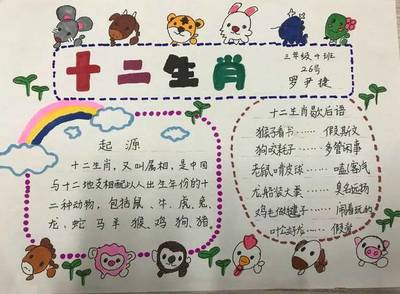 十二生肖
三年级4班
26号
罗尹捷
起 源
十二生肖，又叫属相，是中国
与十二地支相配以人出生年份的十
二种动物，包括鼠、牛、虎、兔
龙、蛇 马 羊 猴、鸡 狗、猪
十二生肖歇后语
猴子看书……假斯文
狗咬耗子……多管闲事
老鼠啃皮球……嗑(客)气
龙船装大粪……臭名远扬
鸡毛做毽子……闹着玩的
叶公好龙……假爱